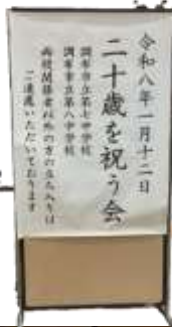 令和八年一月十二日
二十歳を祝う会
調布市立第七中学校
調布市立第八中学校
両校関係者以外の方の立ち入りは
ご遠慮いただいております